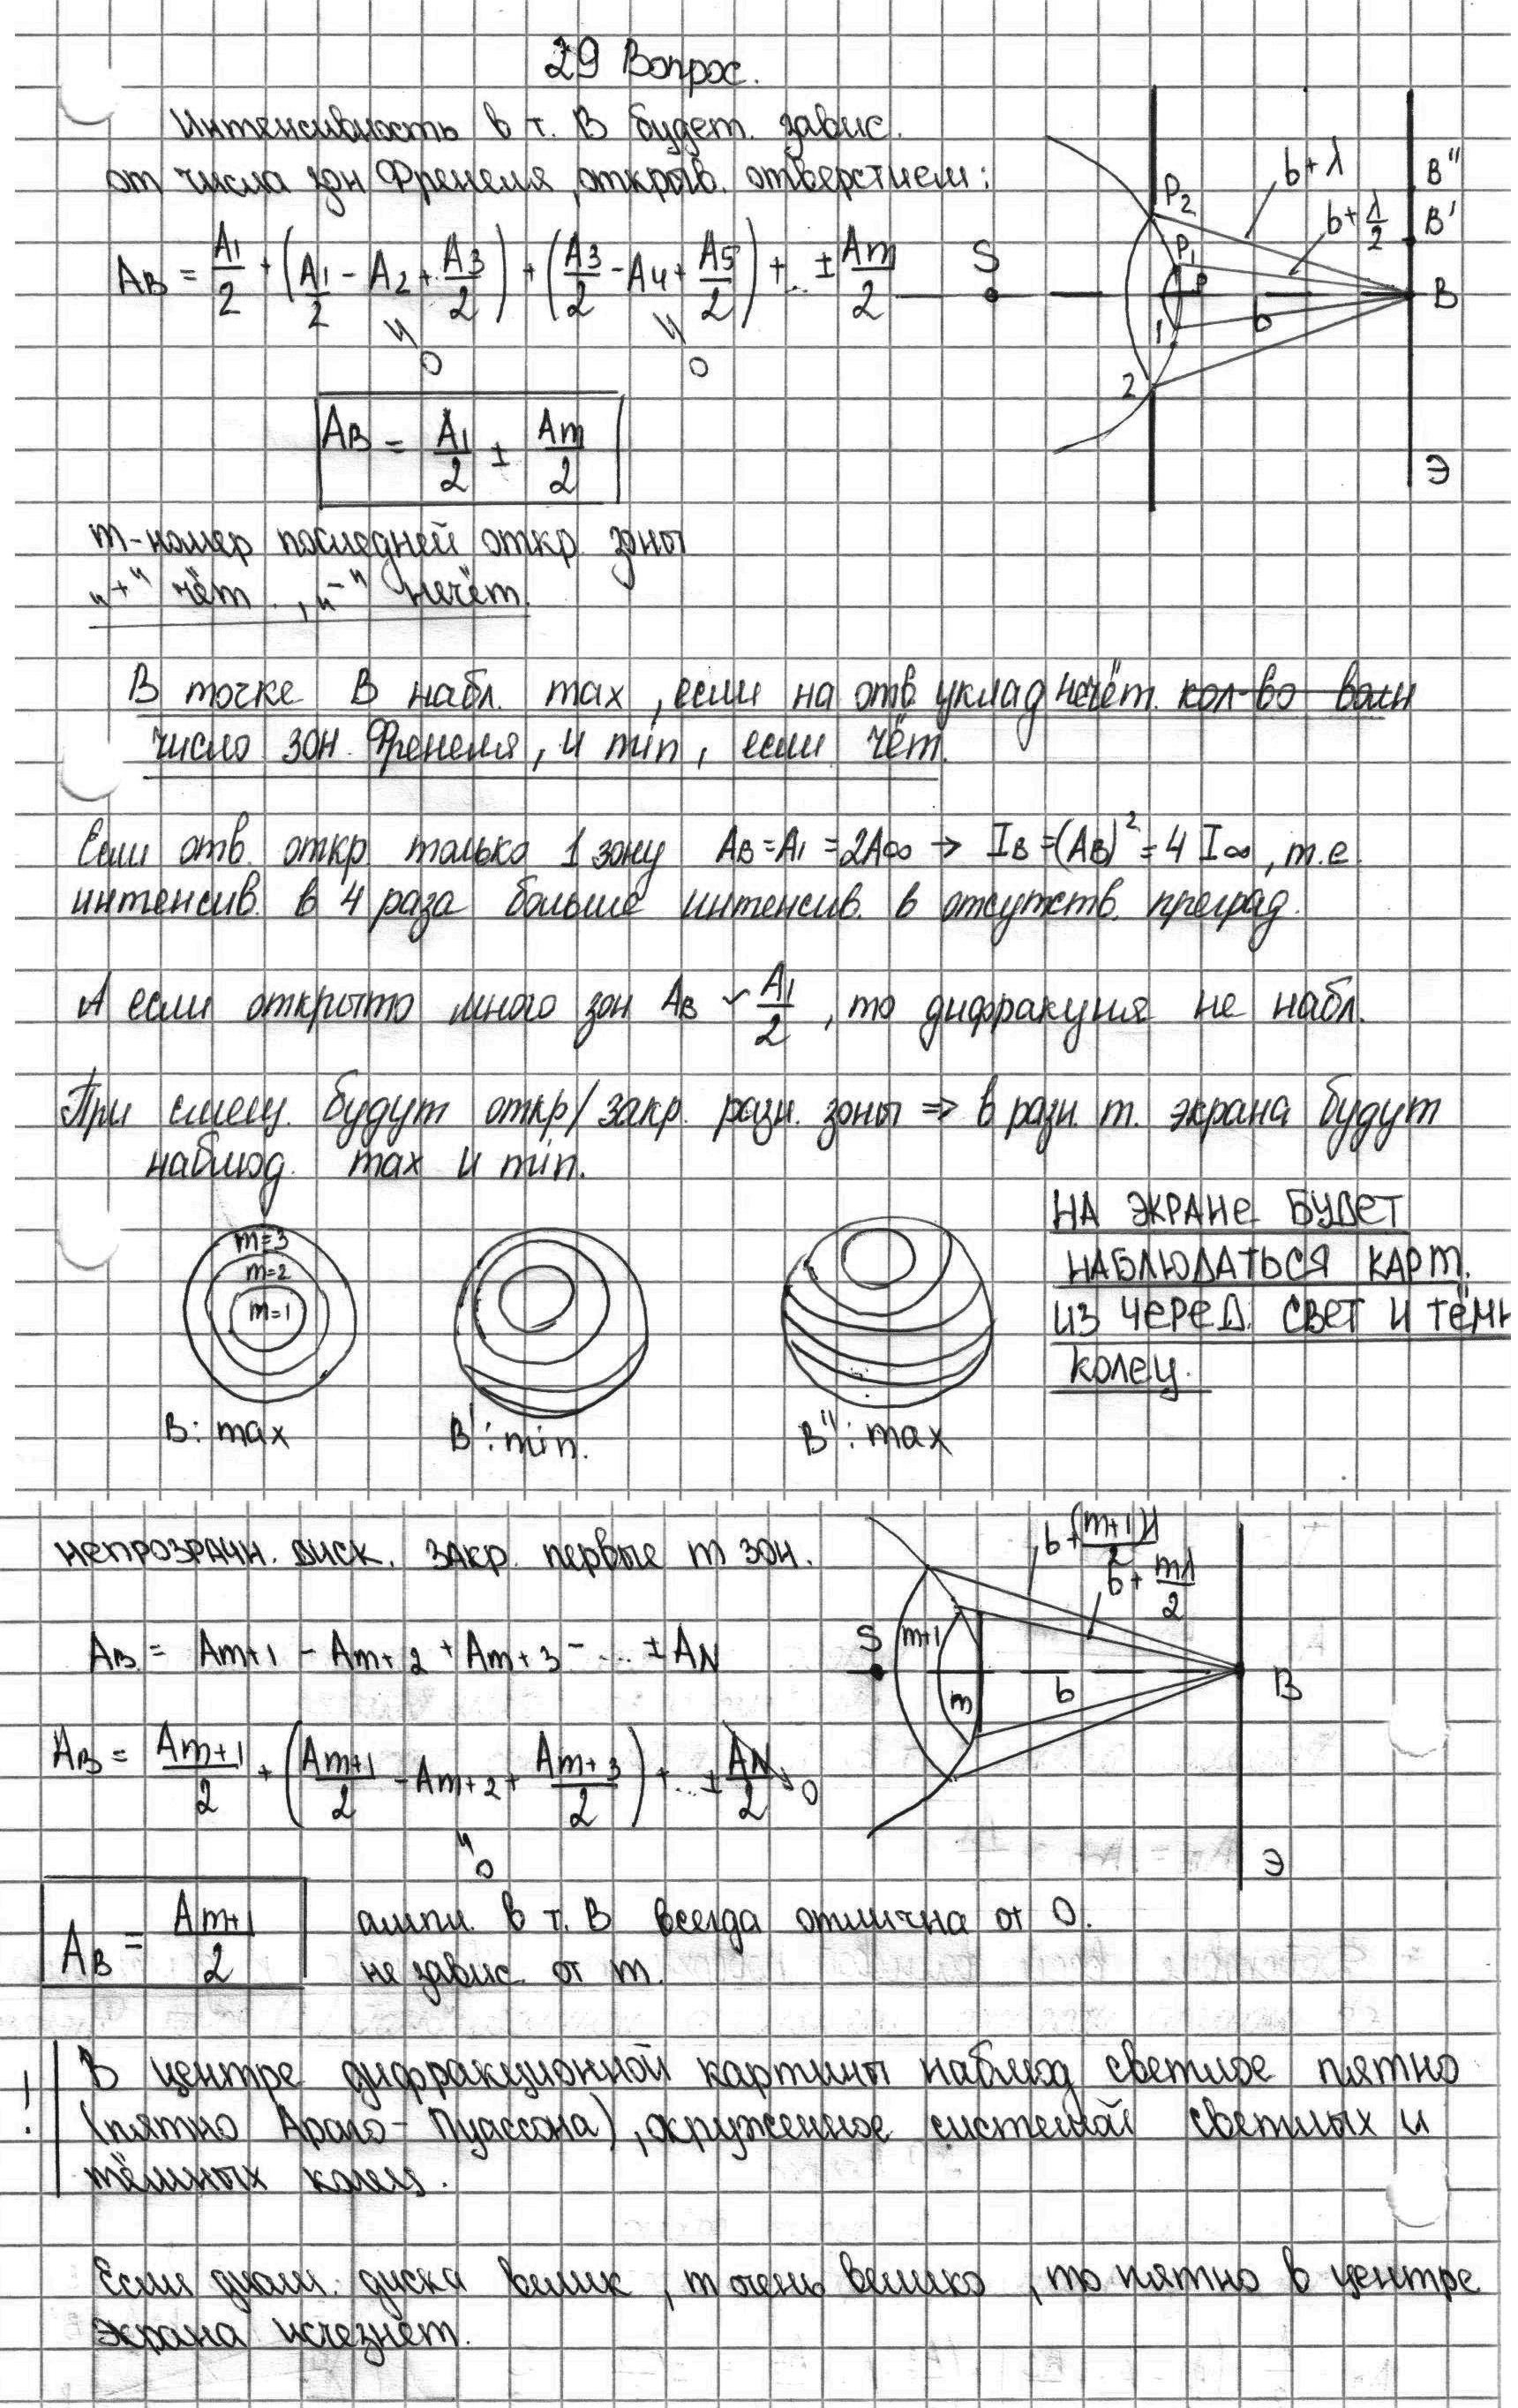 29 Вопрос.
Интенсивность в т. В будет. завис.
от числа зон Френеля, открыв. отверстием:
A_B = A_1/2 + (A_1/2 - A_2 + A_3/2) + (A_3/2 - A_4 + A_5/2) + ... ± A_m/2
0 0
A_B = A_1/2 ± A_m/2
m-номер последней откр. зоны
„+" чёт., „-" нечёт.
S P_2 P_1 P 1 2 b b+λ b+λ/2 B'' B' B Э
В точке В набл. max, если на отв. уклад нечёт. кол-во волн
число зон Френеля, и min, если чёт.
Если отв. откр. только 1 зону A_B = A_1 = 2A∞ → I_B = (A_B)² = 4 I∞, т.е.
интенсив. в 4 раза больше интенсив. в отсутств. преград.
А если открыто много зон A_B ~ A_1/2, то дифракция не набл.
При смещ. будут откр/закр. разн. зоны => в разн. т. экрана будут
наблюд. max и min.
m=3
m=2
m=1
B: max B': min. B'': max
НА ЭКРАНЕ БУДЕТ
НАБЛЮДАТЬСЯ КАРТ.
ИЗ ЧЕРЕД. СВЕТ И ТЁМН
КОЛЕЦ.
НЕПРОЗРАЧН. ДИСК. ЗАКР. первые m зон.
A_B = A_m+1 - A_m+2 + A_m+3 - ... ± A_N
A_B = A_m+1/2 + (A_m+1/2 - A_m+2 + A_m+3/2) + ... ± A_N/2 → 0
0
A_B = A_m+1/2 ампл. в т. В всегда отлична от 0.
не завис. от m.
S m+1 m b b+(m+1)λ/2 b+mλ/2 B Э
! В центре дифракционной картины наблюд светлое пятно
(пятно Араго-Пуассона), окруженное системой светлых и
тёмных колец.
Если диам. диска велик, m очень велико, то пятно в центре
экрана исчезнет.